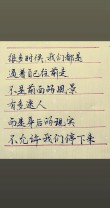 很多时候,我们都是
逼着自己往前走
不是前面的风景
有多迷人
而是身后的现实
不允许我们停下来